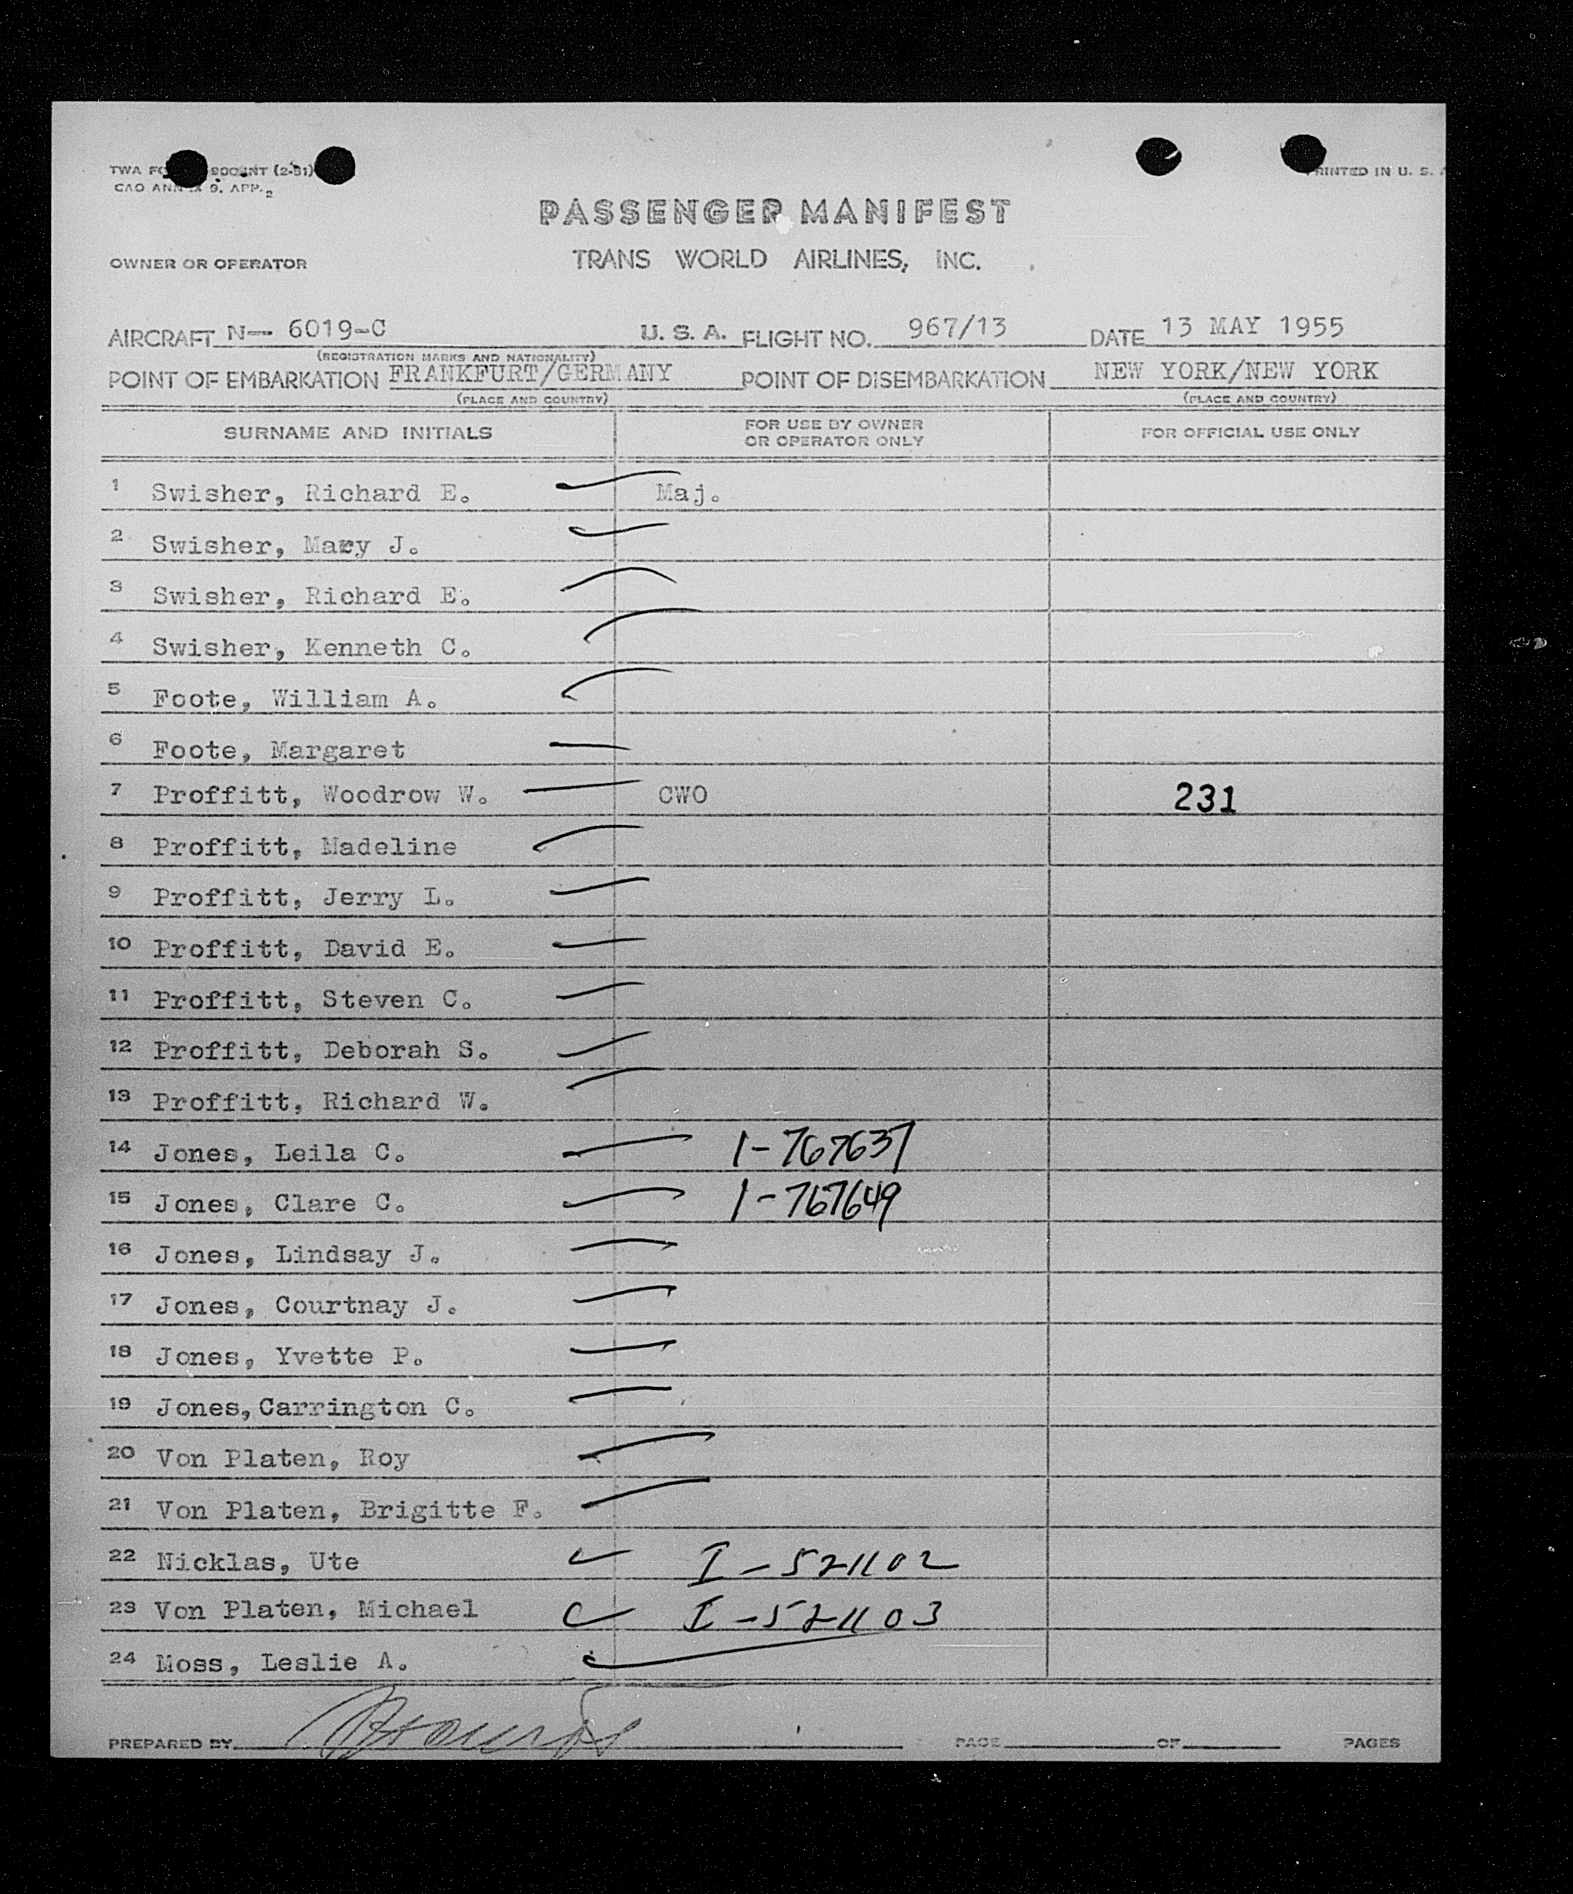 TWA FO
CAO ANN 9. APP. 2
PRINTED IN U. S. A
PASSENGER MANIFEST
OWNER OR OPERATOR TRANS WORLD AIRLINES, INC.
AIRCRAFT N- 6019-C U. S. A. FLIGHT NO. 967/13 DATE 13 MAY 1955
(REGISTRATION MARKS AND NATIONALITY)
POINT OF EMBARKATION FRANKFURT/GERMANY POINT OF DISEMBARKATION NEW YORK/NEW YORK
(PLACE AND COUNTRY) (PLACE AND COUNTRY)
SURNAME AND INITIALS FOR USE BY OWNER OR OPERATOR ONLY FOR OFFICIAL USE ONLY
1 Swisher, Richard E. Maj.
2 Swisher, Mary J.
3 Swisher, Richard E.
4 Swisher, Kenneth C.
5 Foote, William A.
6 Foote, Margaret
7 Proffitt, Woodrow W. CWO 231
8 Proffitt, Madeline
9 Proffitt, Jerry L.
10 Proffitt, David E.
11 Proffitt, Steven C.
12 Proffitt, Deborah S.
13 Proffitt, Richard W.
14 Jones, Leila C. 1-767637
15 Jones, Clare C. 1-767649
16 Jones, Lindsay J.
17 Jones, Courtnay J.
18 Jones, Yvette P.
19 Jones, Carrington C.
20 Von Platen, Roy
21 Von Platen, Brigitte F.
22 Nicklas, Ute I-521102
23 Von Platen, Michael I-521103
24 Moss, Leslie A.
PREPARED BY PAGE OF PAGES